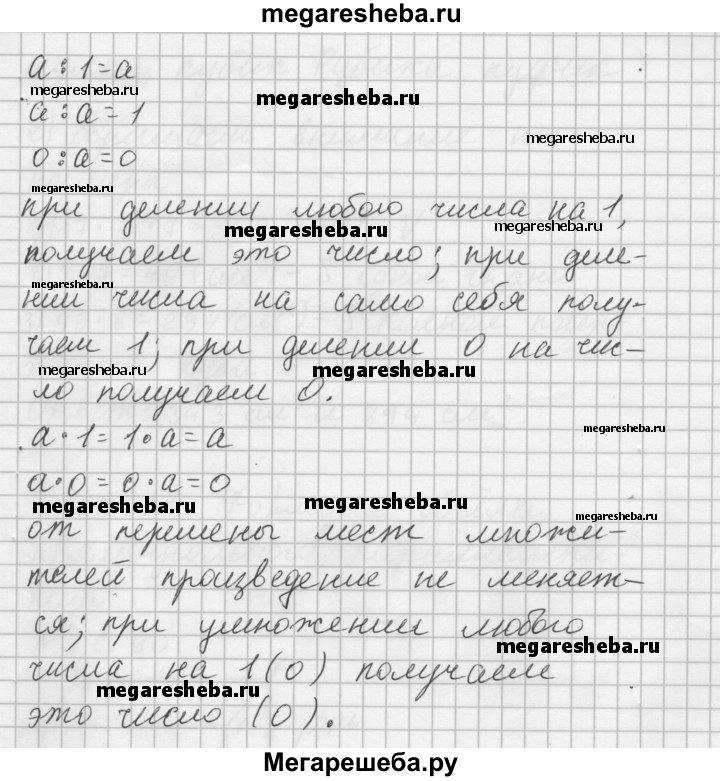 megaresheba.ru
а : 1 = а
megaresheba.ru
megaresheba.ru
а : а = 1
megaresheba.ru
0 : а = 0
megaresheba.ru
при делении любого числа на 1,
megaresheba.ru
megaresheba.ru
получаем это число; при деле-
megaresheba.ru
нии числа на само себя полу-
чаем 1; при делении 0 на чис-
megaresheba.ru
megaresheba.ru
ло получаем 0.
megaresheba.ru
а · 1 = 1 · а = а
а · 0 = 0 · а = 0
megaresheba.ru
megaresheba.ru
megaresheba.ru
от перемены мест множи-
телей произведение не меняет-
ся; при умножении любого
megaresheba.ru
числа на 1 (0) получаем
megaresheba.ru
это число (0).
Мегарешеба.ру